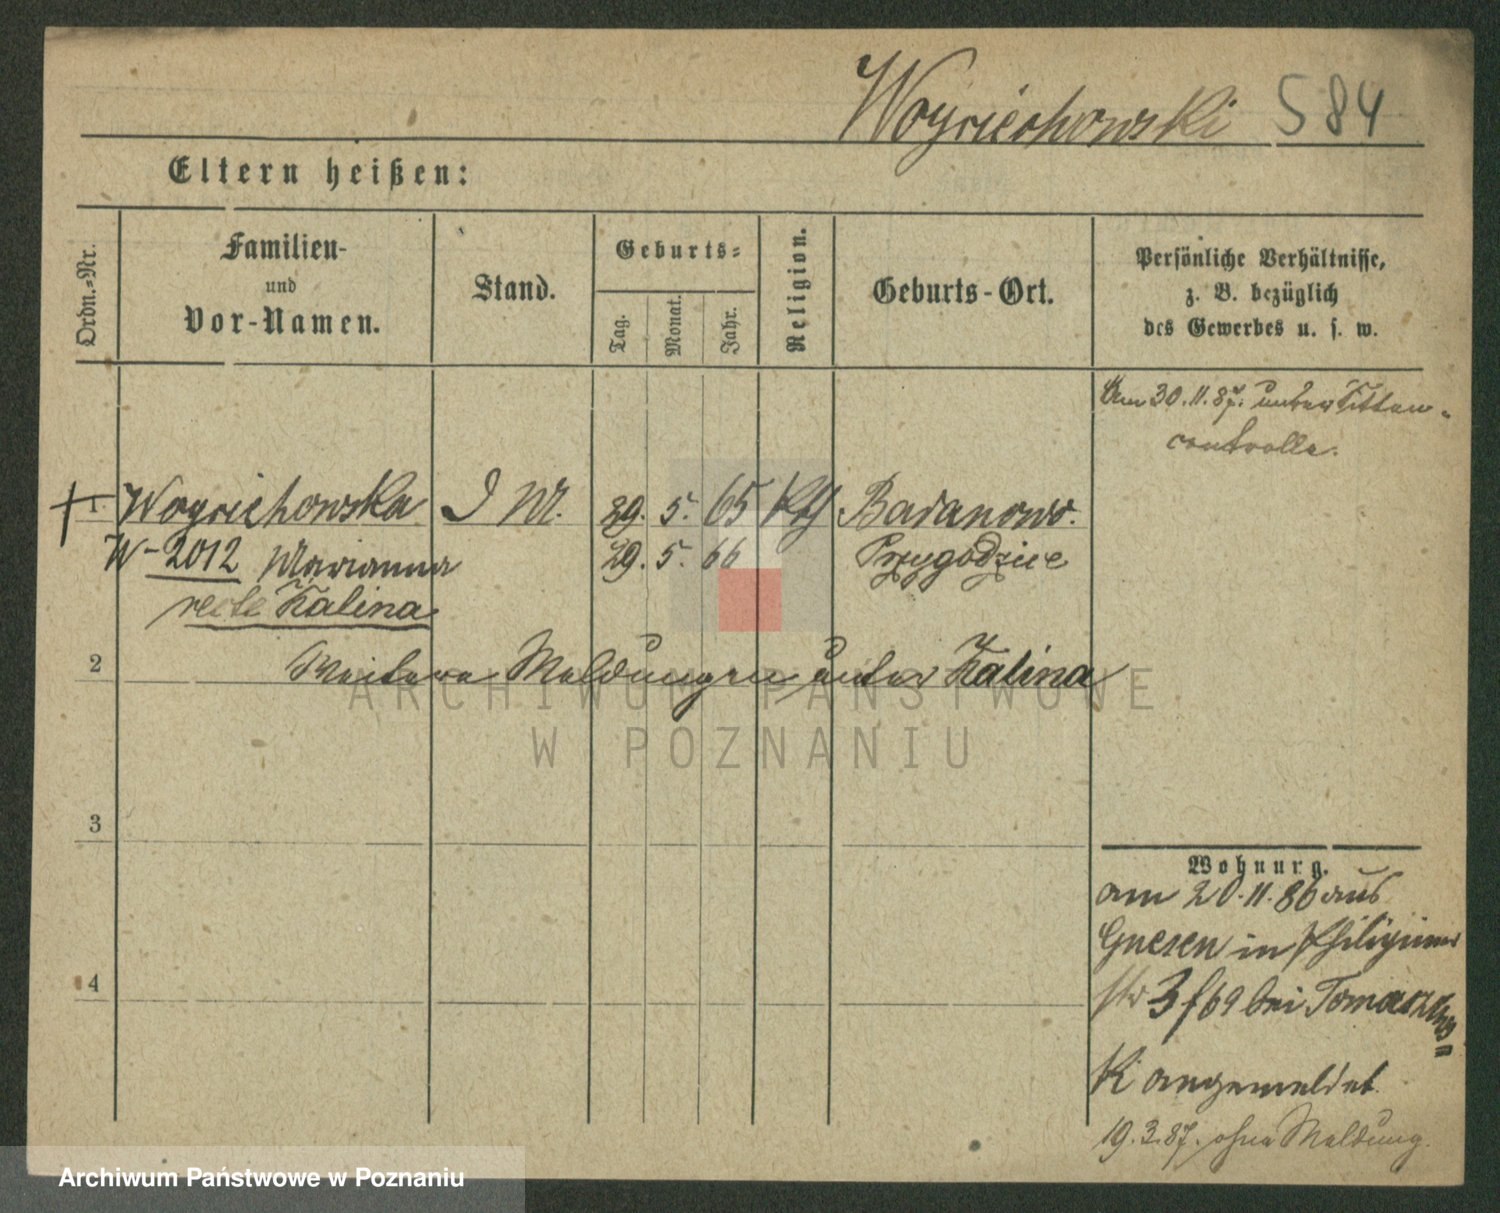 Woyciechowski 584
Eltern heißen:
Ordn.-Nr.
Familien-
und
Vor-Namen.
Stand.
Geburts-
Tag.
Monat.
Jahr.
Religion.
Geburts-Ort.
Persönliche Verhältnisse,
z. B. bezüglich
des Gewerbes u. s. w.
Am 30.11.87. unter Sitten-
controlle.
1 Woyciechowska 29. 5. 65 Kth Baranowo.
W-2012 Marianna 29. 5. 66 Przygodzice
recte Kalina
2 Weitere Meldungen unter Kalina
3
4
Wohnung.
am 20.11.86 aus
Gnesen in
str 3 bei
angemeldet.
19.3.87. ohne Meldung.
ARCHIWUM PAŃSTWOWE
W POZNANIU
Archiwum Państwowe w Poznaniu